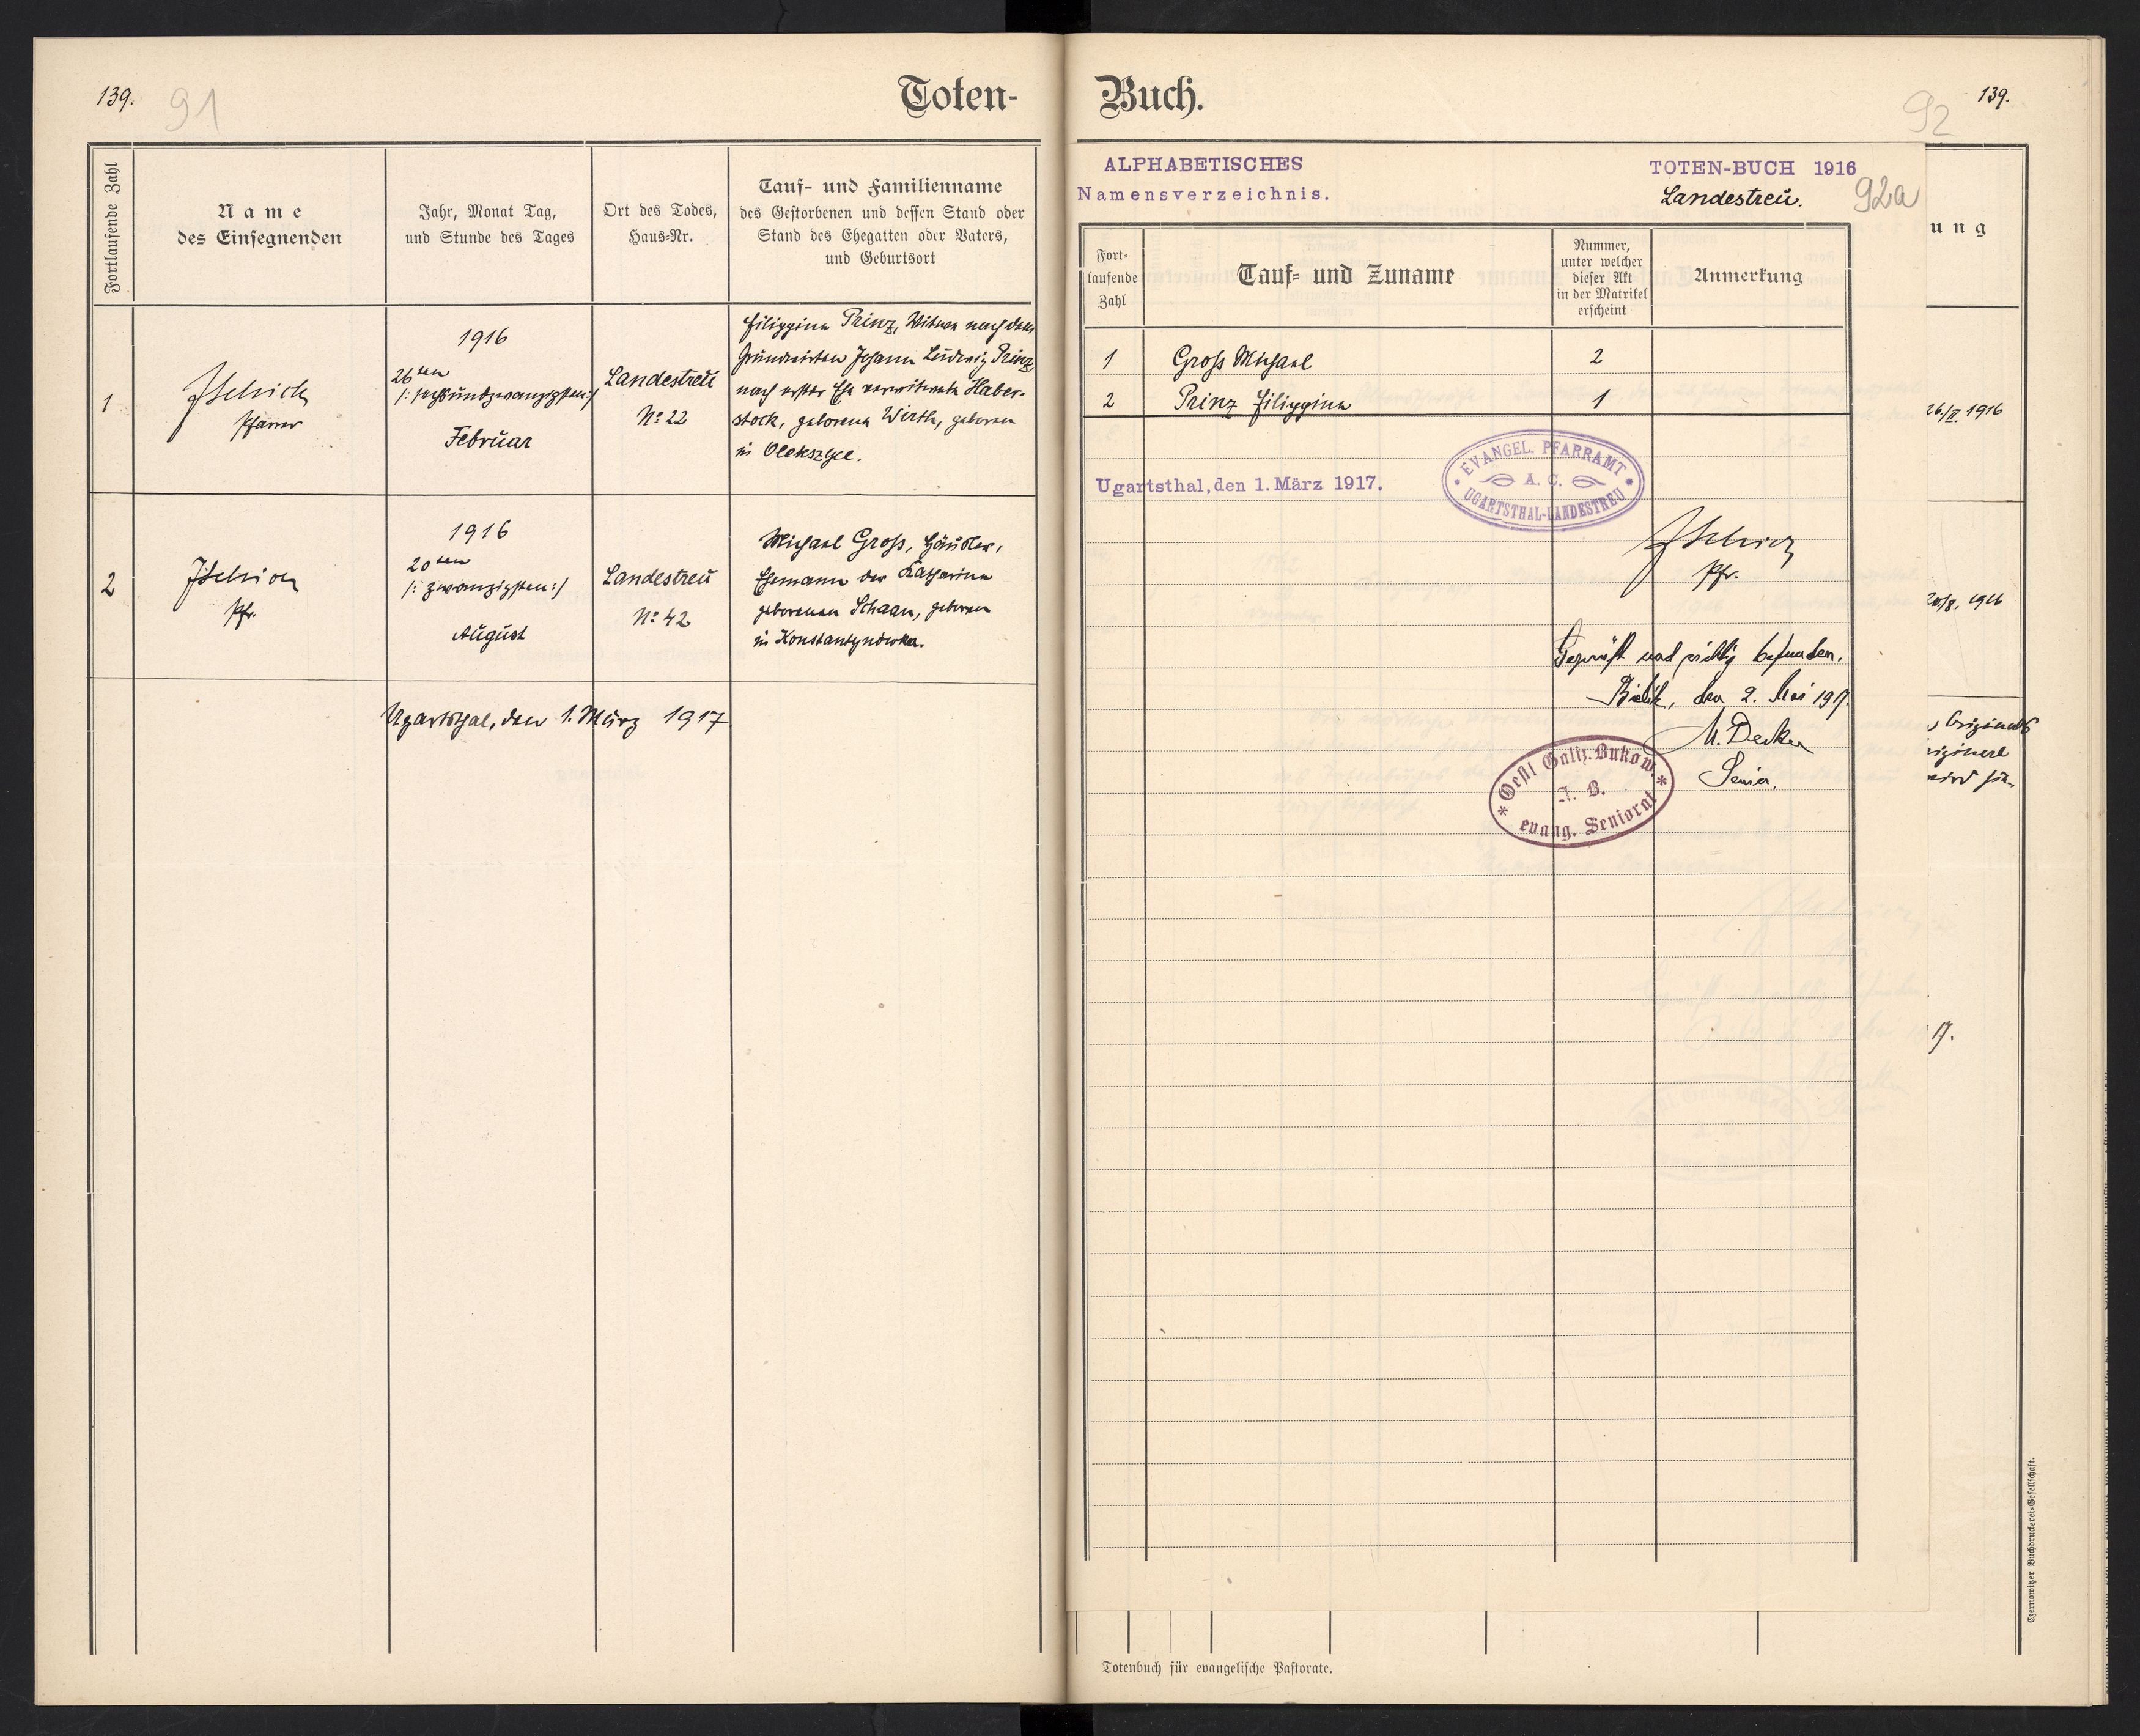 139.
91
Toten-
Fortlaufende Zahl
Name
des Einsegnenden
Jahr, Monat Tag,
und Stunde des Tages
Ort des Todes,
Haus-Nr.
Tauf- und Familienname
des Gestorbenen und dessen Stand oder
Stand des Ehegatten oder Vaters,
und Geburtsort
1
Pfarrer
1916
26ten
/: sechsundzwanzigsten :/
Februar
Landestreu
No 22
Filippine Prinz, Witwe nach dem
Grundwirten Johann Ludwig Prinz,
nach erster Ehe verwitwete Haber-
stock, geborene Wirth, geboren
in Olekszyce.
2
Pfr.
1916
20ten
/: zwanzigsten :/
August
Landestreu
No 42
Michael Groß, Häusler,
Ehemann der Katharina
geborenen Schaan, geboren
in Konstantynowka.
Ugartsthal, den 1. März 1917
Buch.
92
139.
ALPHABETISCHES
Namensverzeichnis.
TOTEN-BUCH 1916
Landestreu.
92a
Fort-
laufende
Zahl
Tauf- und Zuname
Nummer,
unter welcher
dieser Akt
in der Matrikel
erscheint
Anmerkung
1 Groß Michael 2
2 Prinz Filippine 1
Ugartsthal, den 1. März 1917.
EVANGEL. PFARRAMT
A. C.
UGARTSTHAL-LANDESTREU
Pfr.
Geprüft und richtig befunden.
Bielitz, den 2. Mai 1917.
M. Decker
Senior.
Oestl Galiz. Bukow.
A. B.
evang. Seniorat
ung
26/II. 1916
20/8. 1916
wird für
17.
Totenbuch für evangelische Pastorate.
Czernowitzer Buchdruckerei-Gesellschaft.